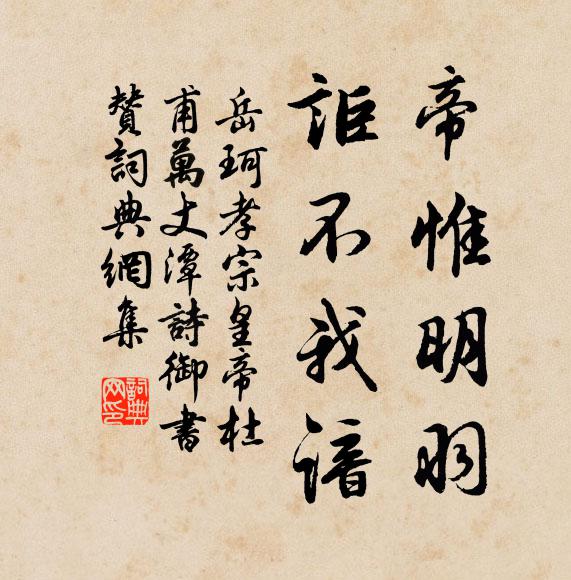 帝惟明明
詎不我諳
岳珂孝宗皇帝杜
甫萬丈潭詩御書
贊詞典網集
詞典
网印